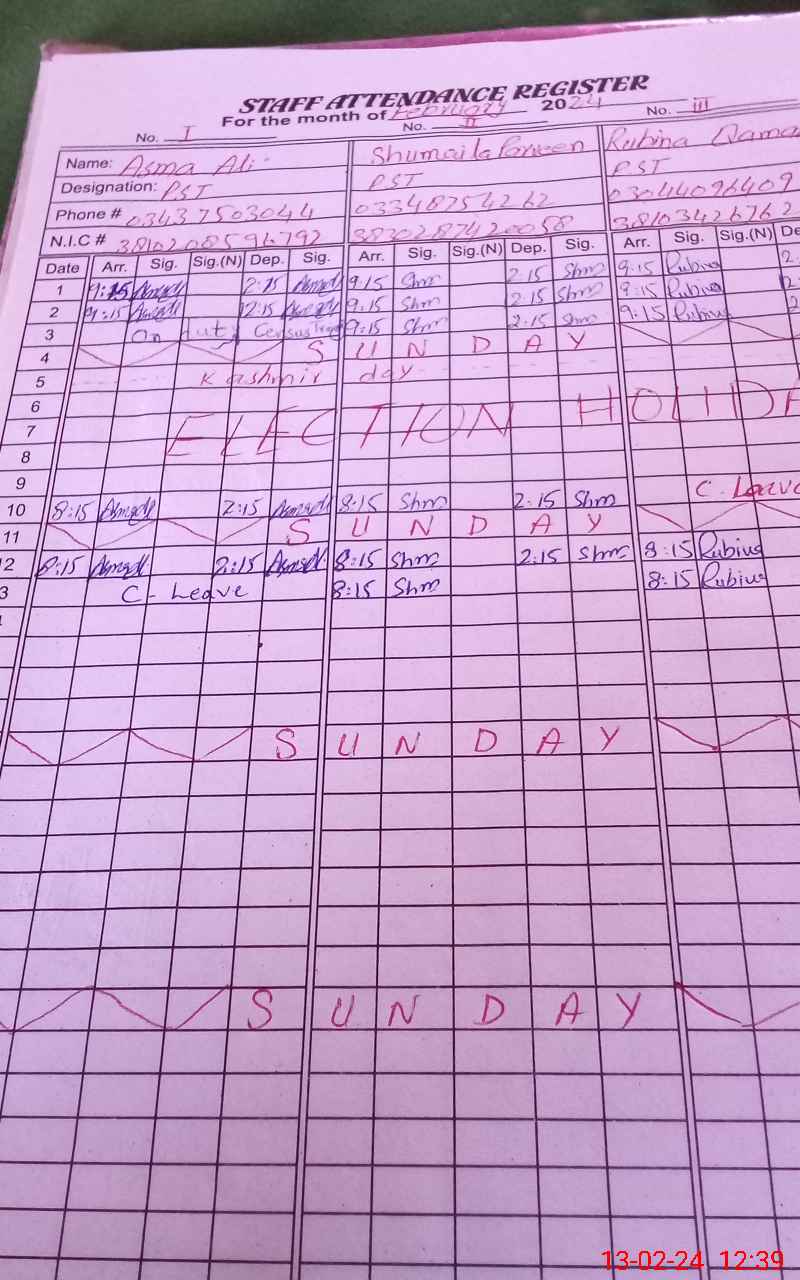 STAFF ATTENDANCE REGISTER
For the month of February 2024
No. I No. II No. III
Name: Asma Ali Shumaila Parveen Rubina Qama
Designation: PST PST PST
Phone # 03437503044 03348754262 03044096409
N.I.C # 3810208596792 3830287420058 38103426762
Date Arr. Sig. Sig.(N) Dep. Sig. Arr. Sig. Sig.(N) Dep. Sig. Arr. Sig. Sig.(N) De
1 9:15 Asmadl 2:15 Asmadl 9:15 Shm 2:15 Shm 9:15 Rubius 2.
2 9:15 Asmadl 2:15 Asmadl 9.15 Shm 2:15 Shm 9:15 Rubius 2
3 On duty Census 9:15 Shm 2:15 Shm 9:15 Rubius 2
4 S U N D A Y
5 Kashmir day
6
7 ELECTION HOLIDA
8
9 C. Leave
10 8:15 Asmadl 2:15 Asmadl 8:15 Shm 2:15 Shm
11 S U N D A Y
2 8:15 Asmadl 2:15 Asmadl 8:15 Shm 2:15 Shm 8:15 Rubius
3 C- Leave 8:15 Shm 8:15 Rubius
S U N D A Y
S U N D A Y
13-02-24 12:39